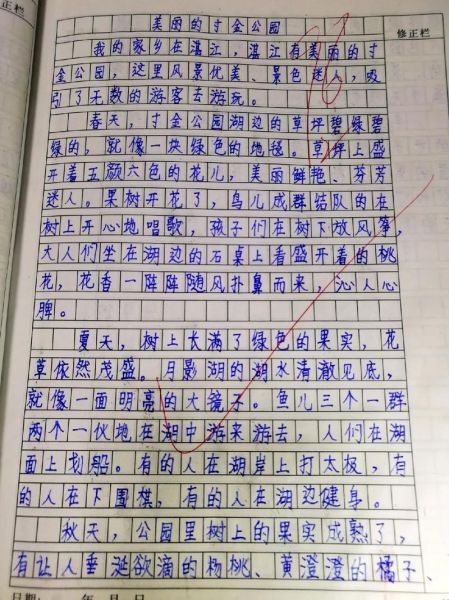 美丽的寸金公园
修正栏
我的家乡在湛江，湛江有美丽的寸
金公园，这里风景优美、景色迷人，吸
引了无数的游客去游玩。
春天，寸金公园湖边的草坪碧绿碧
绿的，就像一块绿色的地毯。草坪上盛
开着五颜六色的花儿，美丽鲜艳、芬芳
迷人。果树开花了，鸟儿成群结队的在
树上开心地唱歌，孩子们在树下放风筝，
大人们坐在湖边的石桌上看盛开着的桃
花，花香一阵阵随风扑鼻而来，沁人心
脾。
夏天，树上长满了绿色的果实，花
草依然茂盛。月影湖的湖水清澈见底，
就像一面明亮的大镜子。鱼儿三个一群
两个一伙地在湖中游来游去，人们在湖
面上划船。有的人在湖岸上打太极，有
的人在下围棋，有的人在湖边健身。
秋天，公园里树上的果实成熟了，
有让人垂涎欲滴的杨桃、黄澄澄的橘子、
日期： 年 月 日